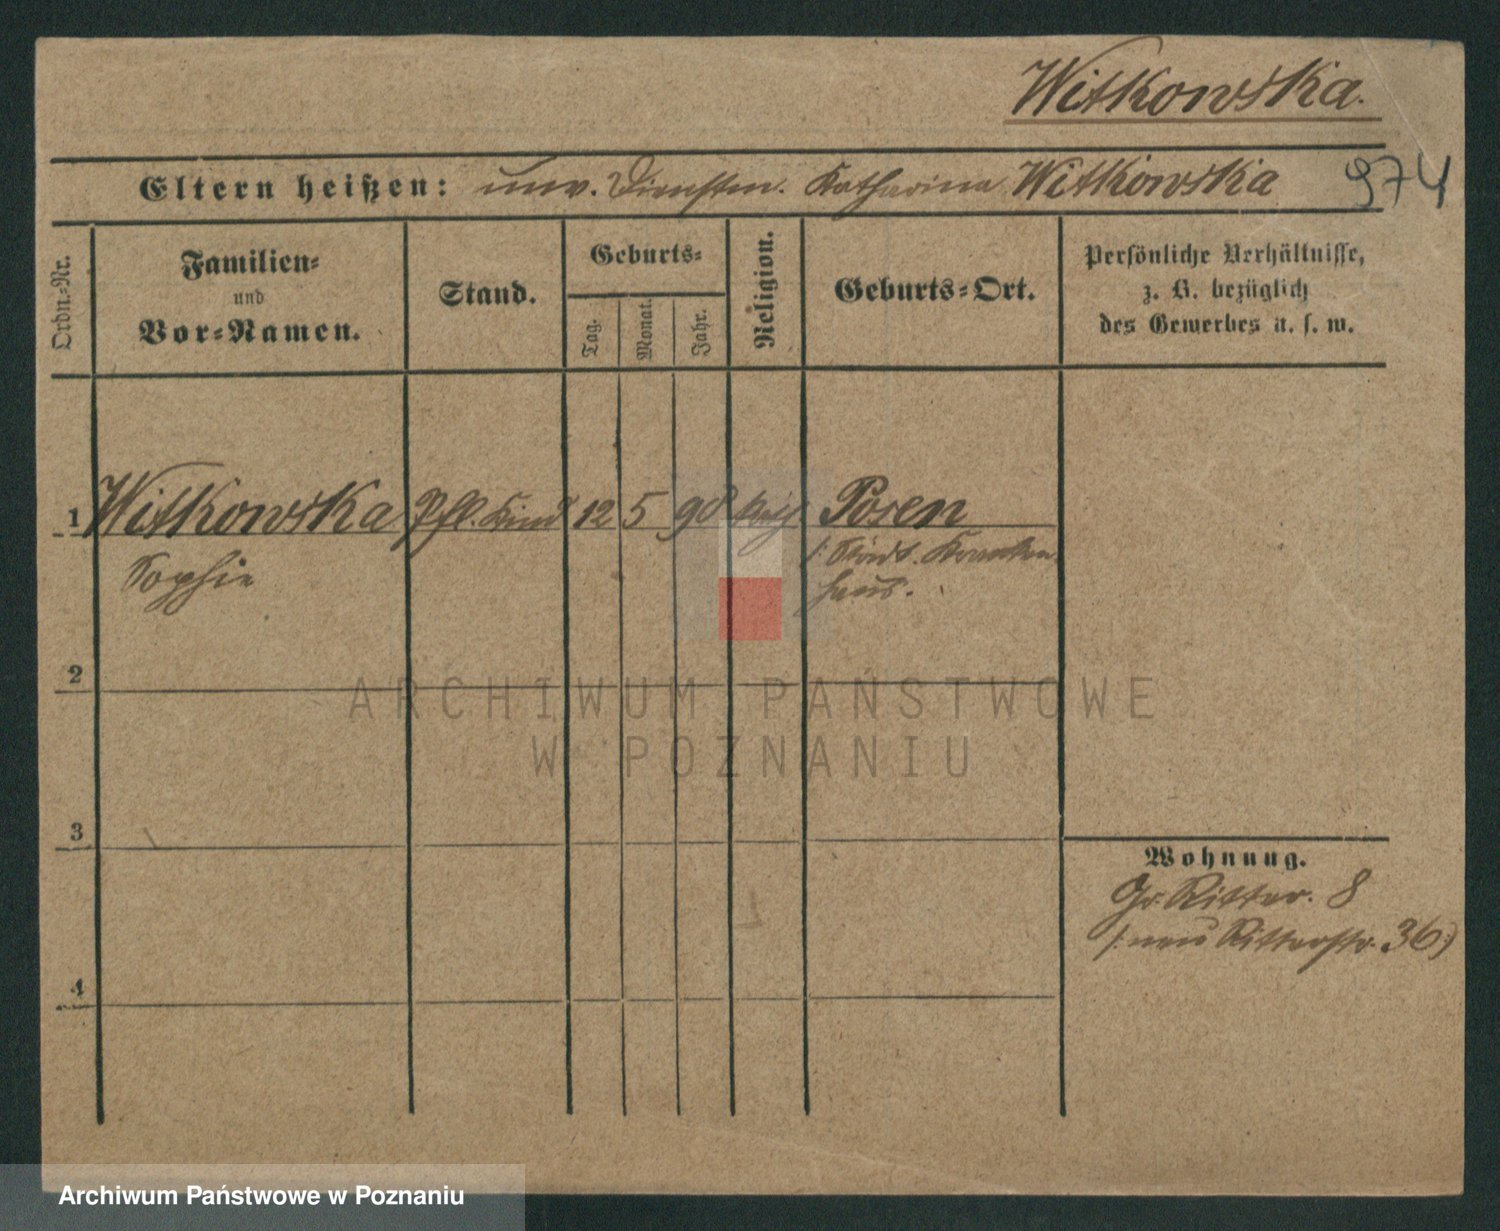 Witkowska.
Eltern heißen: unv. Dienstm. Katharina Witkowska 974
Ordn.-Nr.
Familien-
und
Vor-Namen.
Stand.
Geburts-
Tag.
Monat.
Jahr.
Religion.
Geburts-Ort.
Persönliche Verhältnisse,
z. B. bezüglich
des Gewerbes u. s. w.
1 Witkowska Pfl. Kind 12 5 98 kath Posen
Sophie
/: Städt. Kranken
haus.
2
3
4
Wohnung.
Gr. Ritter. 8
/: neu Ritterstr. 36 :)
ARCHIWUM PAŃSTWOWE
W POZNANIU
Archiwum Państwowe w Poznaniu